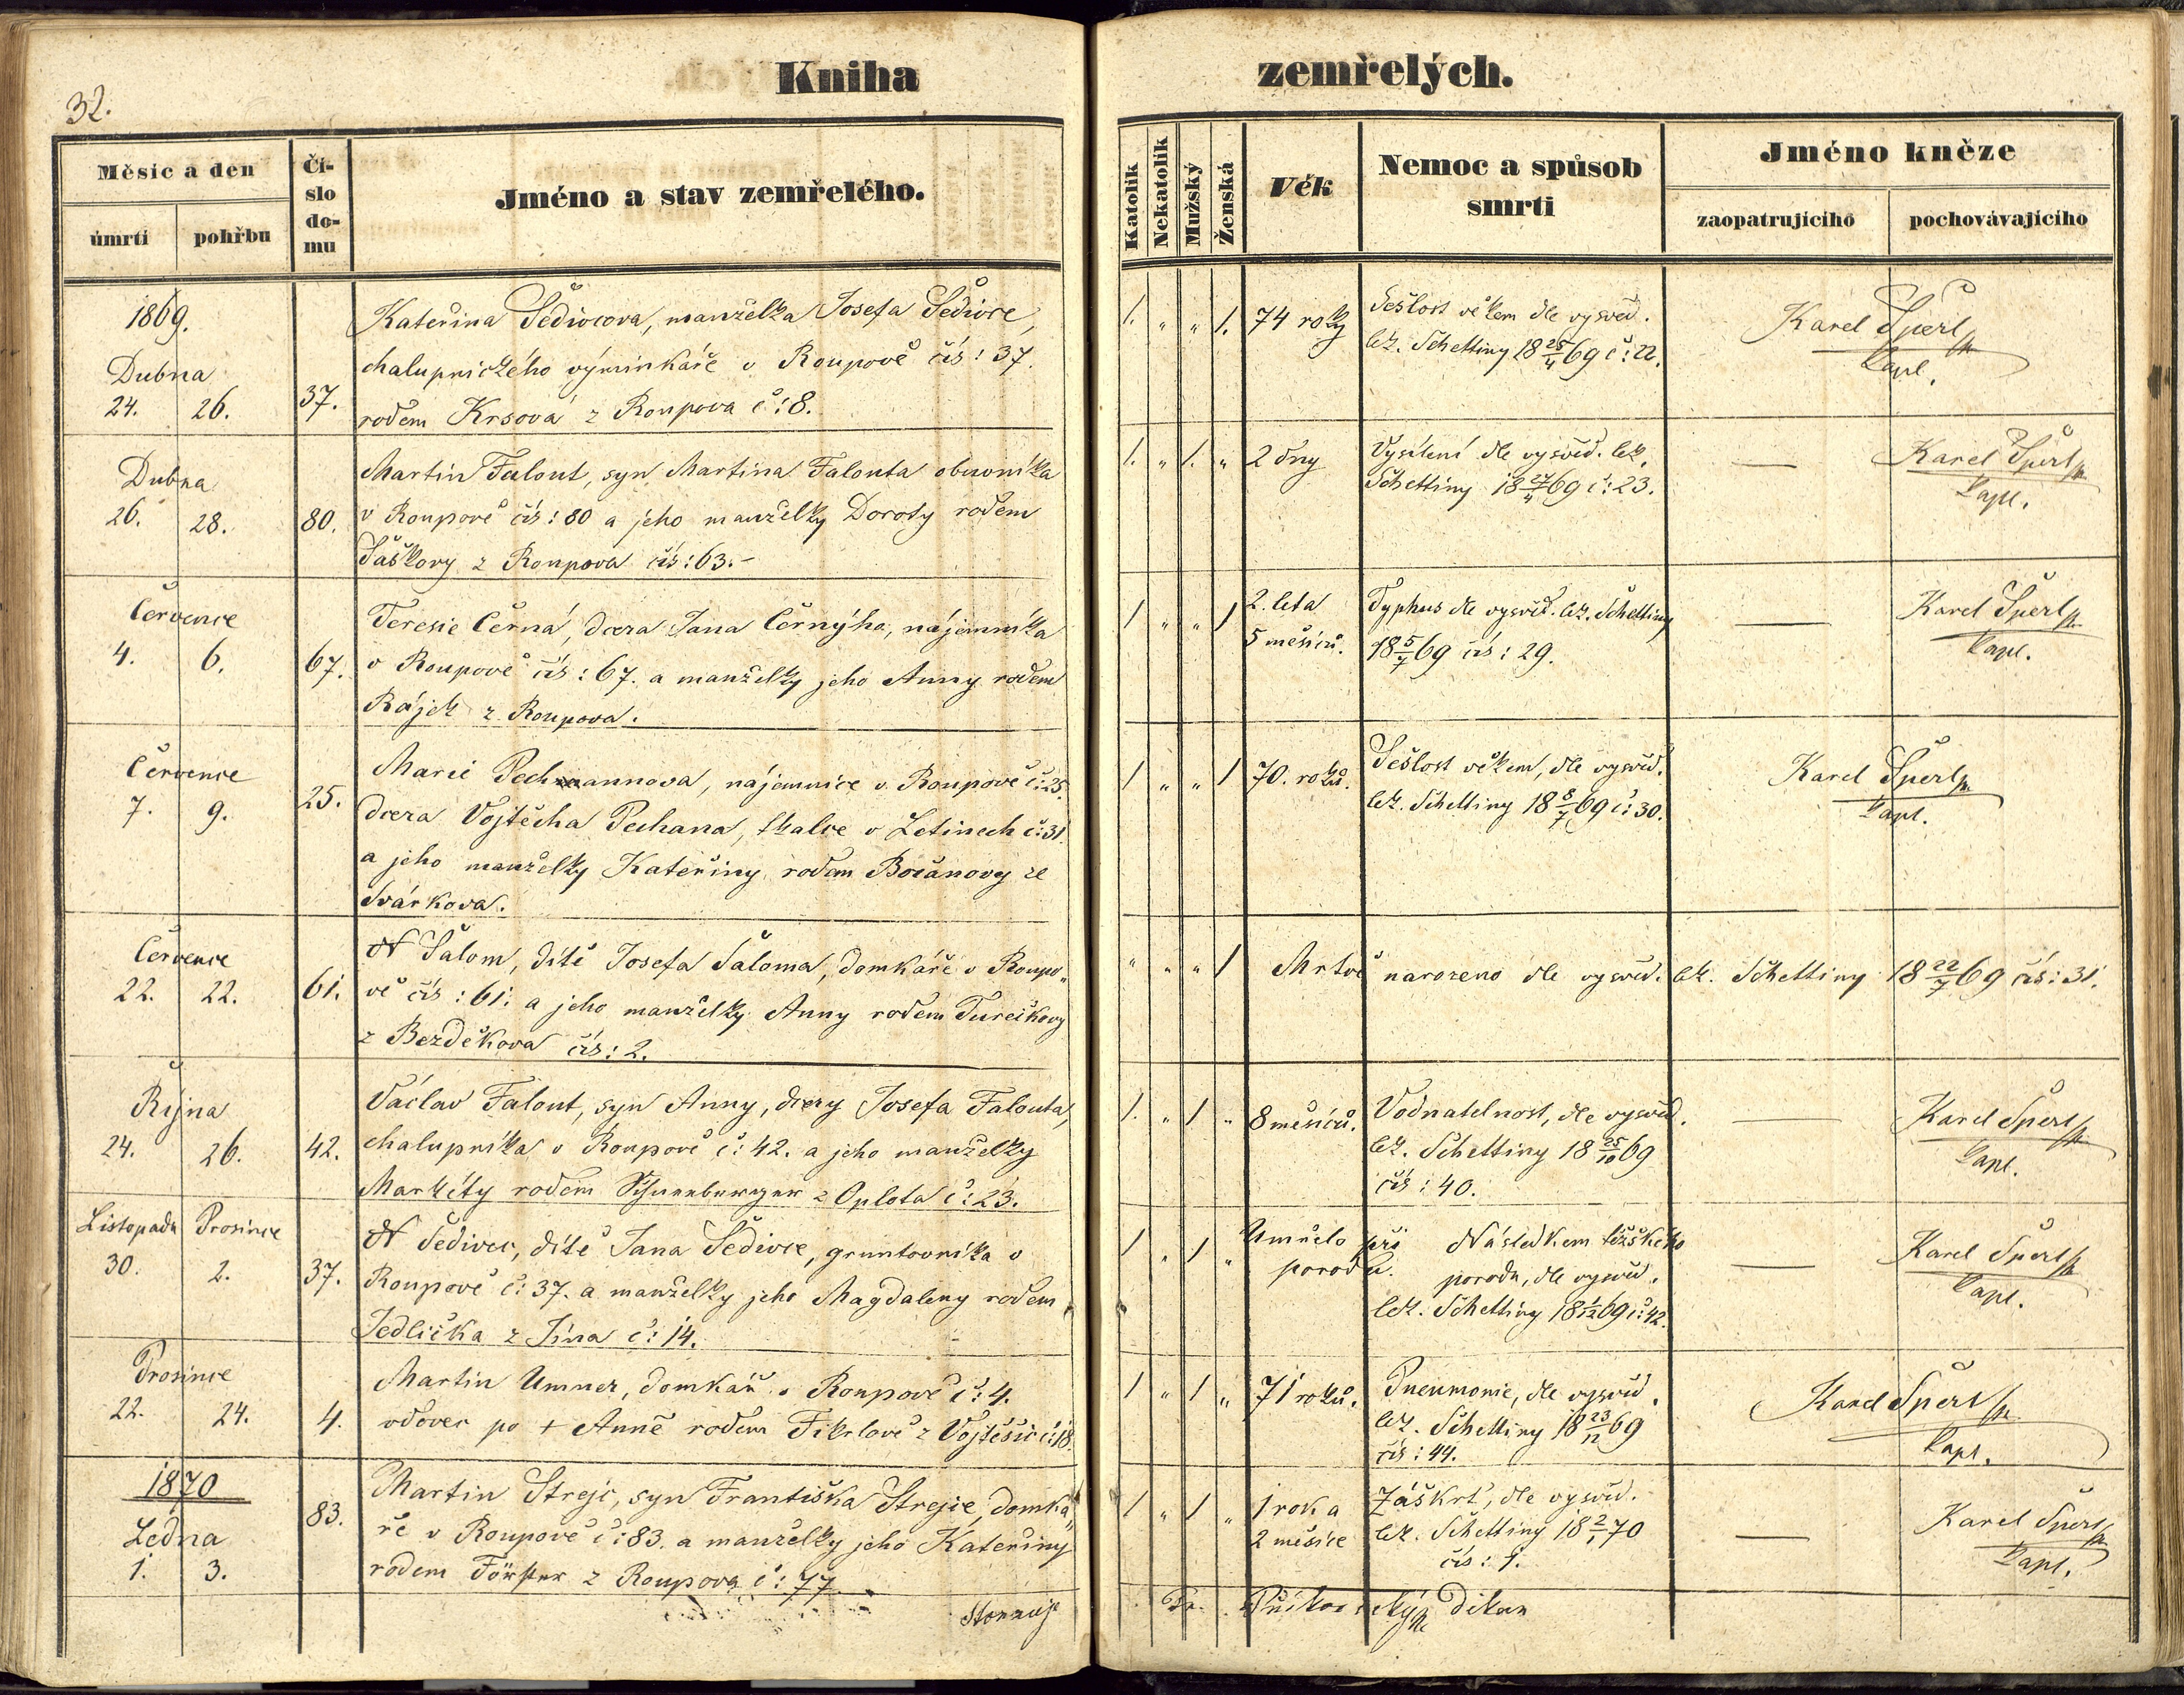 32.
Kniha zemřelých.
Měsíc a den
úmrtí pohřbu
Čí-
slo
do-
mu
Jméno a stav zemřelého.
Katolík
Nekatolík
Mužský
Ženská
Věk
Nemoc a spůsob
smrti
Jméno kněze
zaopatrujícího pochovávajícího
1869.
Dubna
24. 26.
37.
Kateřina Šedivcova, manželka Josefa Šedivce,
chalupnického výminkáře v Roupově čís: 37.
rodem Krsová z Roupova č: 8.
1. " " 1.
74 roky
Sešlost věkem dle vysvěd.
lék. Schettiny 18 25/4 69 č: 22.
Karel Šperl
kapl.
Dubna
26. 28.
80.
Martin Falout, syn Martina Falouta obuvníka
v Roupově čís: 80 a jeho manželky Doroty rodem
Šaškovy z Roupova čís: 63.-
1. " 1. "
2 dny
Vysílení dle vysvěd. lek.
Schettiny 18 27/4 69 č: 23.
—
Karel Šperl
kapl.
Července
4. 6.
67.
Teresie Černá, dcera Jana Černýho, nájemníka
v Roupově čís: 67. a manželky jeho Anny rodem
Rájek z Roupova.
1 " " 1
2. leta
5 měsíců.
Typhus dle vysvěd. lék. Schettiny
18 5/7 69 čís: 29.
—
Karel Šperl
kapl.
Července
7. 9.
25.
Marie Pechmannova, nájemnice v Roupově č: 25.
dcera Vojtěcha Pechana, tkalce v Letinech č: 31
a jeho manželky Kateřiny rodem Bočanovy ze
Svárkova.
1 " " 1
70. roků.
Sešlost věkem, dle vysvěd.
lék. Schettiny 18 8/7 69 č: 30.
Karel Šperl
kapl.
Července
22. 22.
61.
N Šalom, dítě Josefa Šaloma, domkáře v Roupo-
vě čís: 61. a jeho manželky Anny rodem Turečkovy
z Bezděkova čís: 2.
" " " 1
Mrtvě narozeno dle vysvěd. lék. Schettiny 18 22/7 69 čís: 31.
Října
24. 26.
42.
Václav Falout, syn Anny, dcery Josefa Falouta,
chalupníka v Roupově č: 42. a jeho manželky
Markéty rodem z Oplota č: 23.
1. " 1 "
8 měsíců.
Vodnatelnost, dle vysvěd.
lék. Schettiny 18 25/10 69
čís: 40.
—
Karel Šperl
kapl.
Listopadu Prosince
30. 2.
37.
N Šedivec, dítě Jana Šedivce, gruntovníka v
Roupově č: 37. a manželky jeho Magdaleny rodem
Jedlička z Jína č: 14.
1 " 1 "
Umřelo při
porodu.
Následkem těžkého
porodu, dle vysvěd.
lék. Schettiny 18 1/12 69 č: 42.
—
Karel Šperl
kapl.
Prosince
22. 24.
4.
Martin Umner, domkář v Roupově č: 4.
vdovec po + Anně rodem Fikrlově z Vojtěšic č: 18.
1 " 1 "
71 roků.
Pneumonie, dle vysvěd.
lék. Schettiny 18 23/12 69
čís: 44.
Karel Šperl
kapl.
1870
Ledna
1. 3.
83.
Martin Strejc, syn Františka Strejce, domká-
ře v Roupově č: 83. a manželky jeho Kateřiny
rodem Förster z Roupova č: 77.
1 " 1 "
1 rok a
2 měsíce
Záškrt, dle vysvěd.
lék. Schettiny 18 2/1 70
čís: 1.
—
Karel Šperl
kapl.
děkan